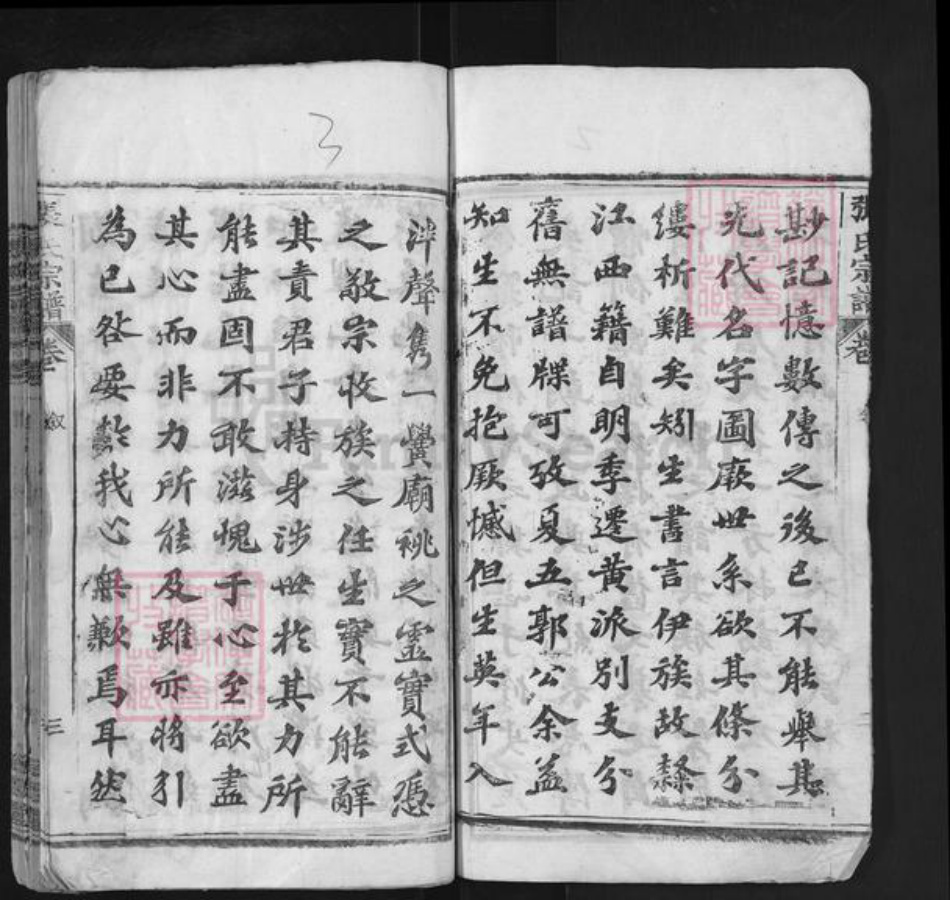 張氏宗譜
卷
尠記憶數傳之後已不能舉其
先代名字圖厥世系欲其條分
縷析難矣矧生書言伊族故隸
江西籍自明季遷黃派別支分
舊無譜牒可攷夏五郭公余益
知生不免抱厥憾但生英年入
泮聲雋一黌廟祧之靈實式憑
之敬宗收族之任生實不能辭
其責君子持身涉世於其力所
能盡固不敢滋愧于心至欲盡
其心而非力所能及雖亦將引
為己咎要於我心無歉焉耳然
宗譜
卷
敘
三
3
FamilySearch